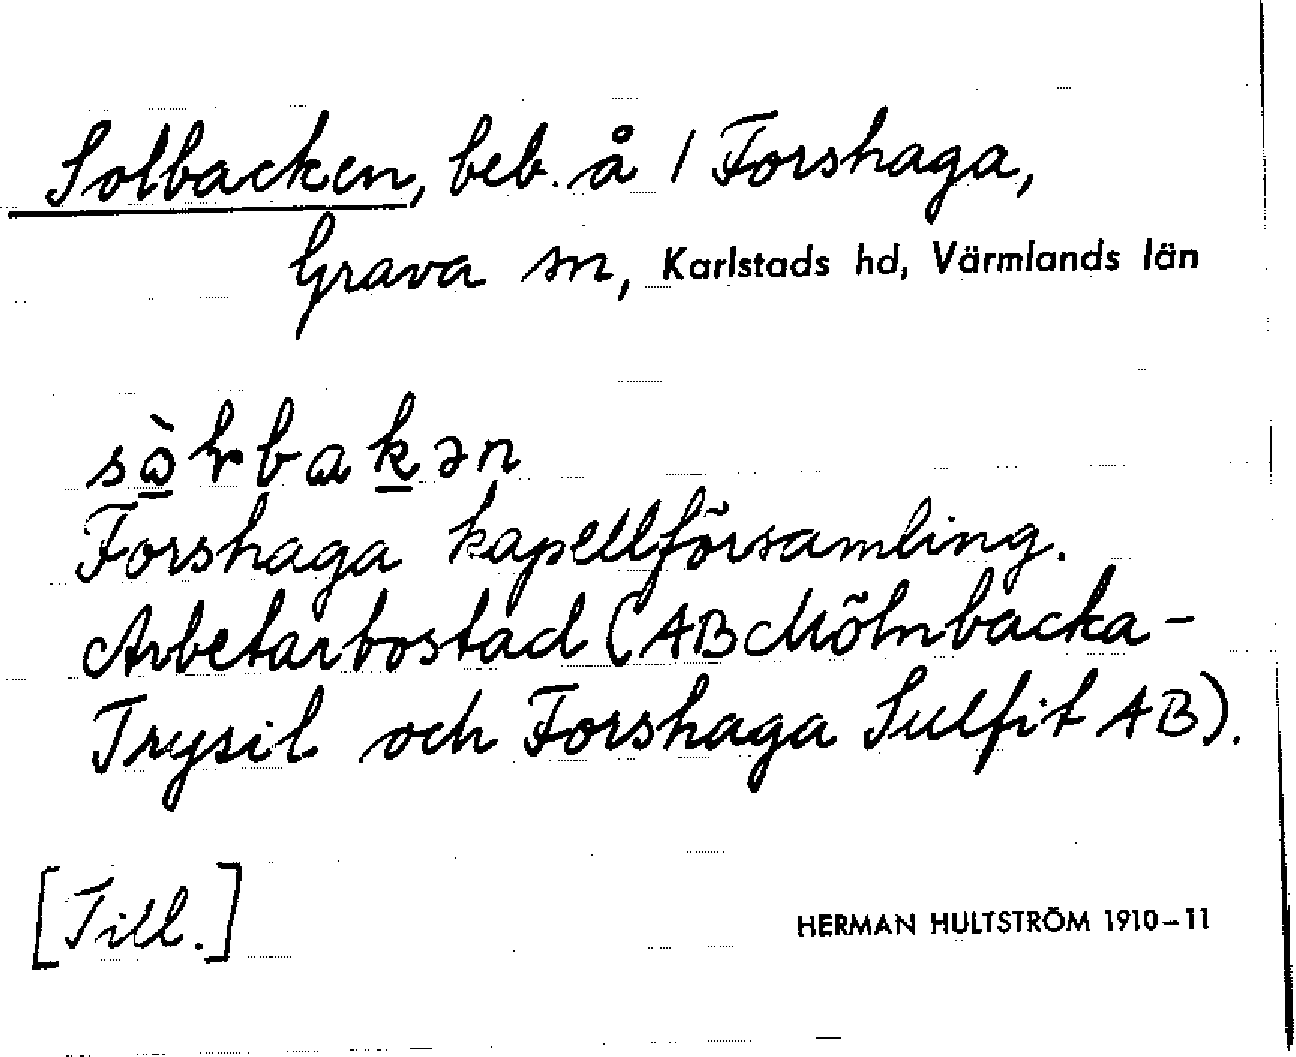 Solbacken, beb. å 1 Forshaga,
Grava sn, Karlstads hd, Värmlands län
Forshaga kapellförsamling.
Arbetarbostad (AB Mölnbacka-
Trysil och Forshaga Sulfit AB).
[Till.]
HERMAN HULTSTRÖM 1910-11